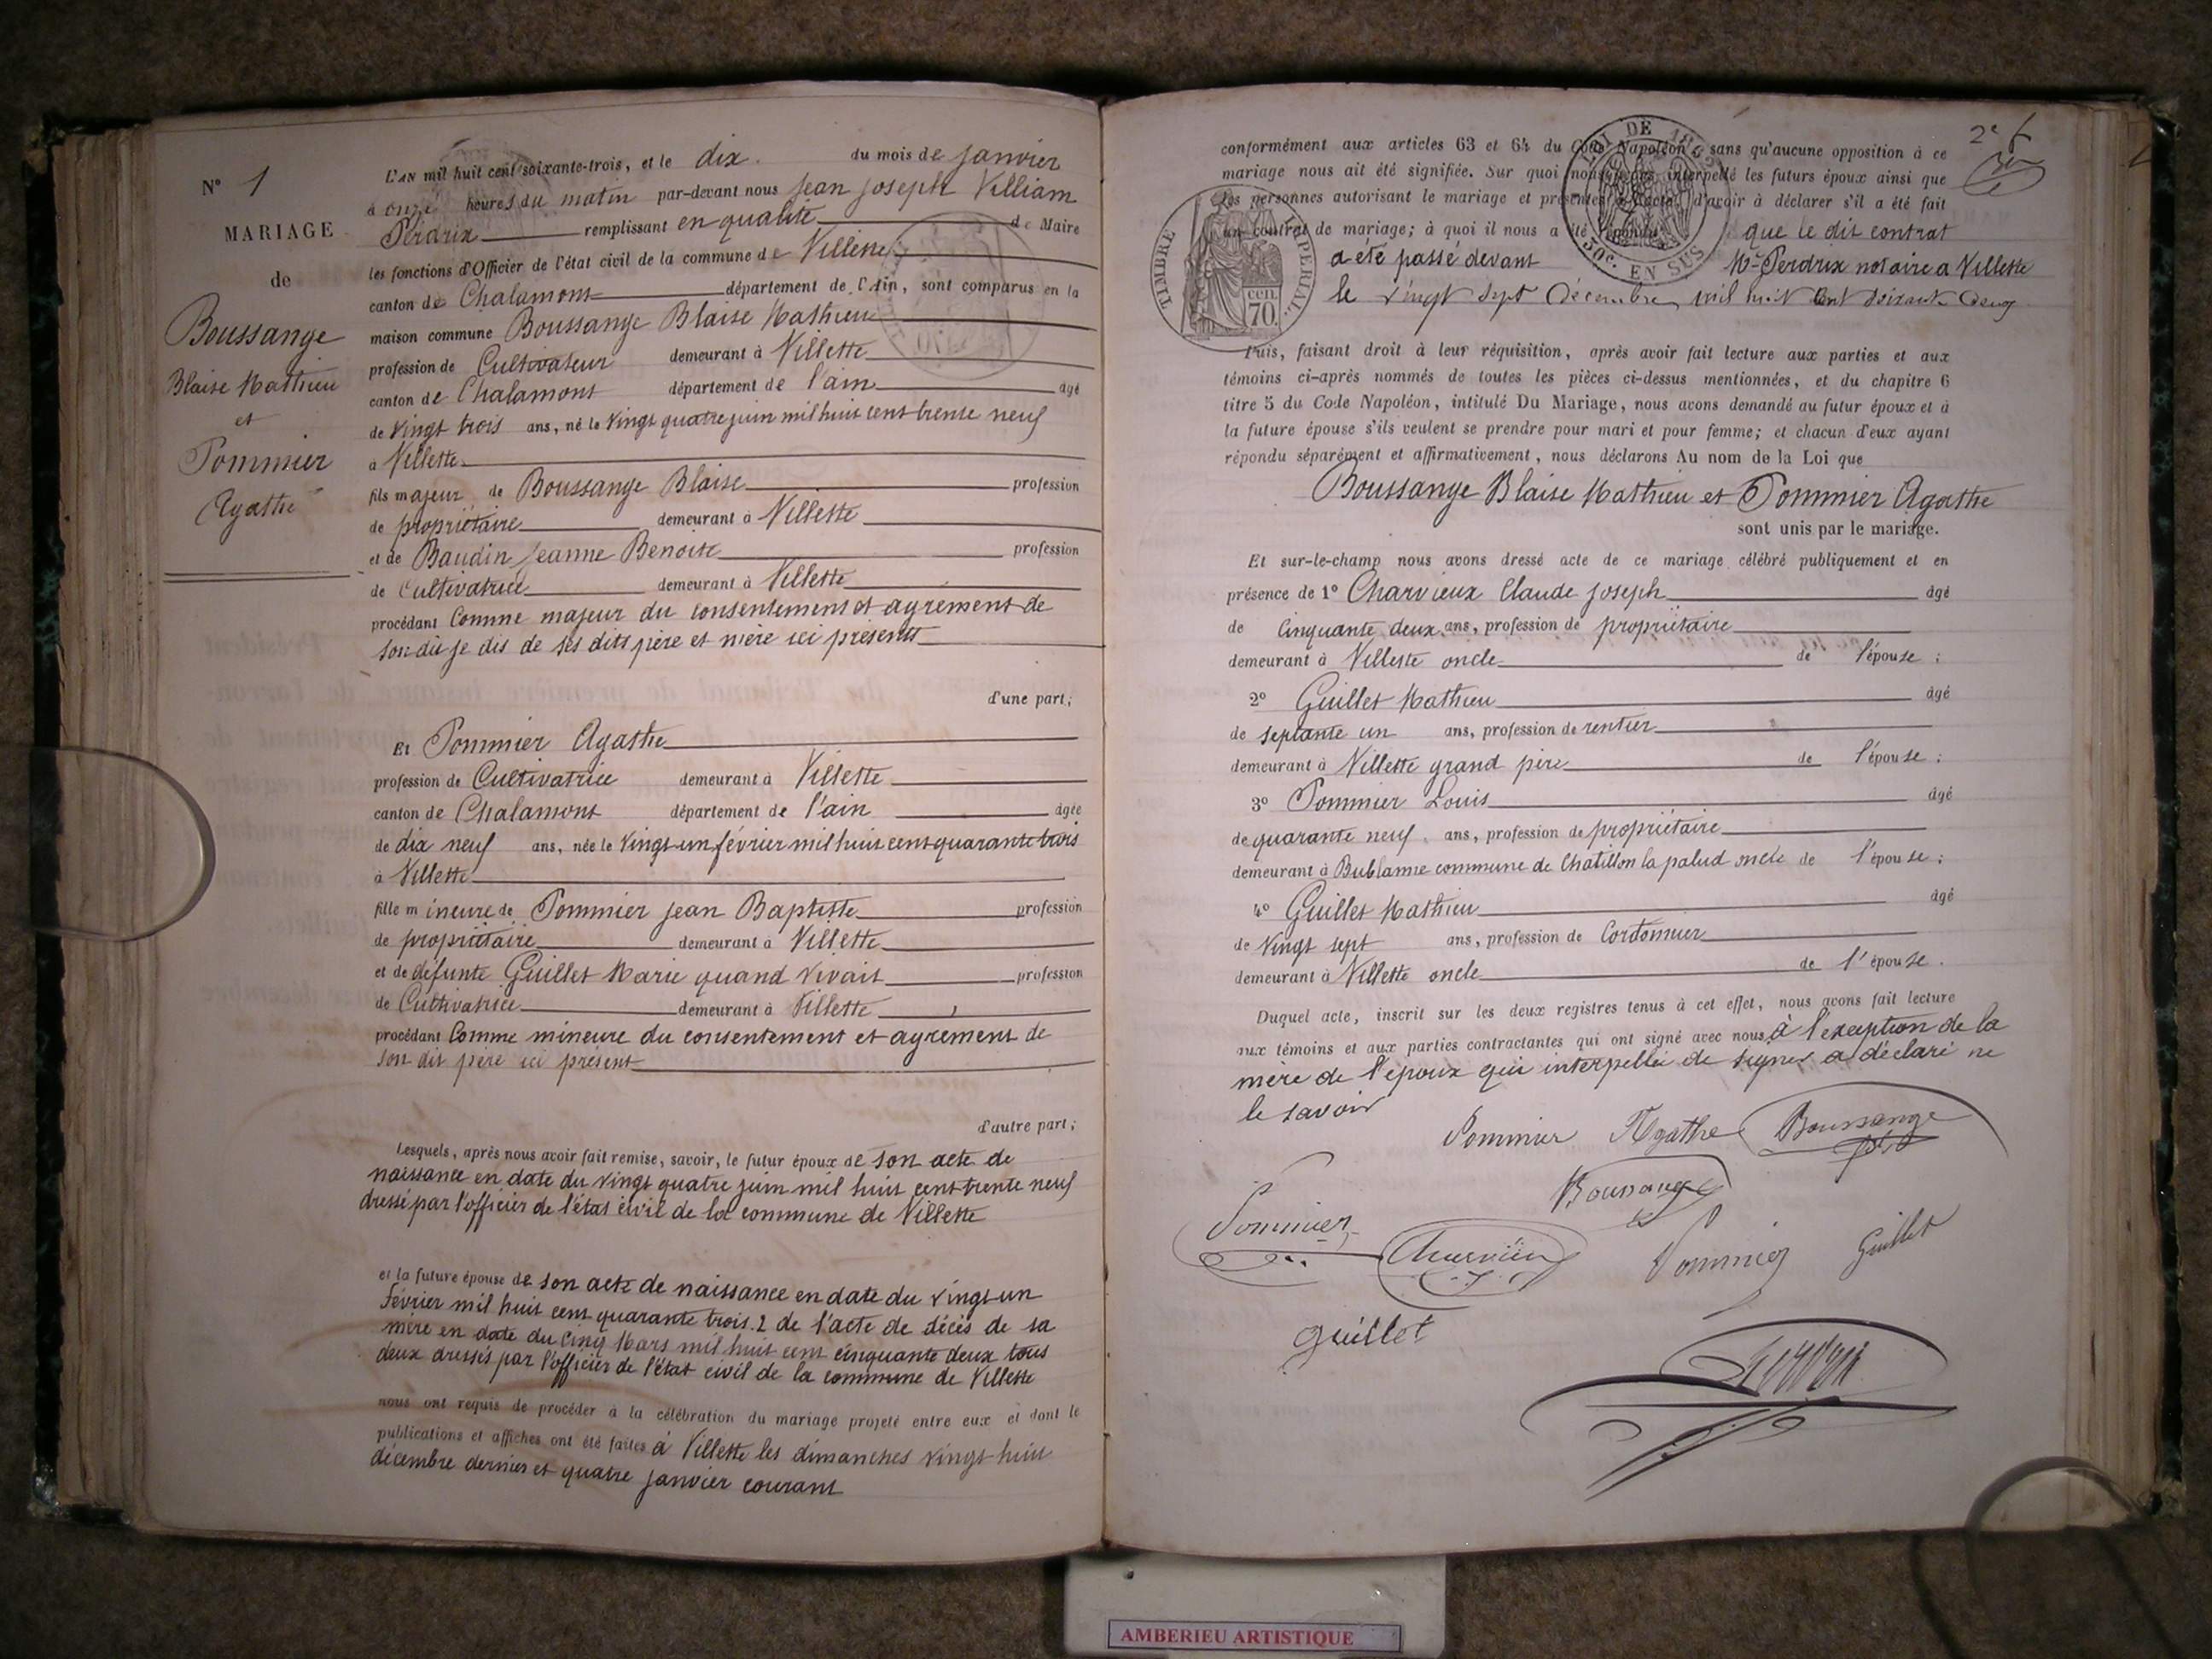 N° 1
MARIAGE
de
Boussange
Blaise Mathieu
et
Pommier
Agathe
L'AN mil huit cent soixante-trois, et le dix du mois de janvier
à onze heures du matin par-devant nous jean joseph Villiam
Perdrix remplissant en qualité de Maire
les fonctions d'Officier de l'état civil de la commune de Villette
canton de Chalamont département de l'Ain, sont comparus en la
maison commune Boussange Blaise Mathieu
profession de Cultivateur demeurant à Villette
canton de Chalamont département de l'ain âgé
de vingt trois ans, né le vingt quatre juin mil huit cent trente neuf
à Villette
fils majeur de Boussange Blaise profession
de propriétaire demeurant à Villette
et de Baudin jeanne Benoite profession
de Cultivatrice demeurant à Villette
procédant Comme majeur du consentement et agrément de
son dit je dis de ses dits père et mère ici présents
d'une part;
Et Pommier Agathe
profession de Cultivatrice demeurant à Villette
canton de Chalamont département de l'ain âgée
de dix neuf ans, née le vingt un février mil huit cent quarante trois
à Villette
fille mineure de Pommier jean Baptiste profession
de propriétaire demeurant à Villette
et de défunte Guillet Marie quand vivait profession
de Cultivatrice demeurant à Villette
procédant Comme mineure du consentement et agrément de
son dit père ici présent
d'autre part;
Lesquels, après nous avoir fait remise, savoir, le futur époux de son acte de
naissance en date du vingt quatre juin mil huit cent trente neuf
dressé par l'officier de l'état civil de la commune de Villette
et la future épouse de son acte de naissance en date du vingt un
février mil huit cent quarante trois. 2 de l'acte de décès de sa
mère en date du cinq Mars mil huit cent cinquante deux tous
deux dressés par l'officier de l'état civil de la commune de Villette
nous ont requis de procéder à la célébration du mariage projeté entre eux et dont le
publications et affiches ont été faites à Villette les dimanches vingt huit
décembre dernier et quatre janvier courant
2e
conformément aux articles 63 et 64 du Code Napoléon, sans qu'aucune opposition à ce
mariage nous ait été signifiée. Sur quoi nous avons interpellé les futurs époux ainsi que
les personnes autorisant le mariage et présentes à l'acte, d'avoir à déclarer s'il a été fait
un contrat de mariage; à quoi il nous a été répondu que le dit contrat
a été passé devant Me Perdrix notaire a Villette
le vingt sept Décembre mil huit cent soixante deux
LOI DE
50c. EN SUS
TIMBRE IMPERIAL
CCII
70.
Puis, faisant droit à leur réquisition, après avoir fait lecture aux parties et aux
témoins ci-après nommés de toutes les pièces ci-dessus mentionnées, et du chapitre 6
titre 5 du Code Napoléon, intitulé Du Mariage, nous avons demandé au futur époux et à
la future épouse s'ils veulent se prendre pour mari et pour femme; et chacun d'eux ayant
répondu séparément et affirmativement, nous déclarons Au nom de la Loi que
Boussange Blaise Mathieu et Pommier Agathe
sont unis par le mariage.
Et sur-le-champ nous avons dressé acte de ce mariage célébré publiquement et en
présence de 1° Charvieux Claude joseph âgé
de Cinquante deux ans, profession de propriétaire
demeurant à Villette oncle de l'épouse;
2° Guillet Mathieu âgé
de septante un ans, profession de rentier
demeurant à Villette grand père de l'épouse;
3° Pommier Louis âgé
de quarante neuf ans, profession de propriétaire
demeurant à Bublanne commune de Chatillon la palud oncle de l'épouse;
4° Guillet Mathieu âgé
de vingt sept ans, profession de Cordonnier
demeurant à Villette oncle de l'épouse.
Duquel acte, inscrit sur les deux registres tenus à cet effet, nous avons fait lecture
aux témoins et aux parties contractantes qui ont signé avec nous à l'exception de la
mère de l'époux qui interpellée de signer a déclaré ne
le savoir
Pommier Agathe Boussange
Boussange
Pommier Charvieux Pommier Guillet
guillet
Perdrix
AMBERIEU ARTISTIQUE